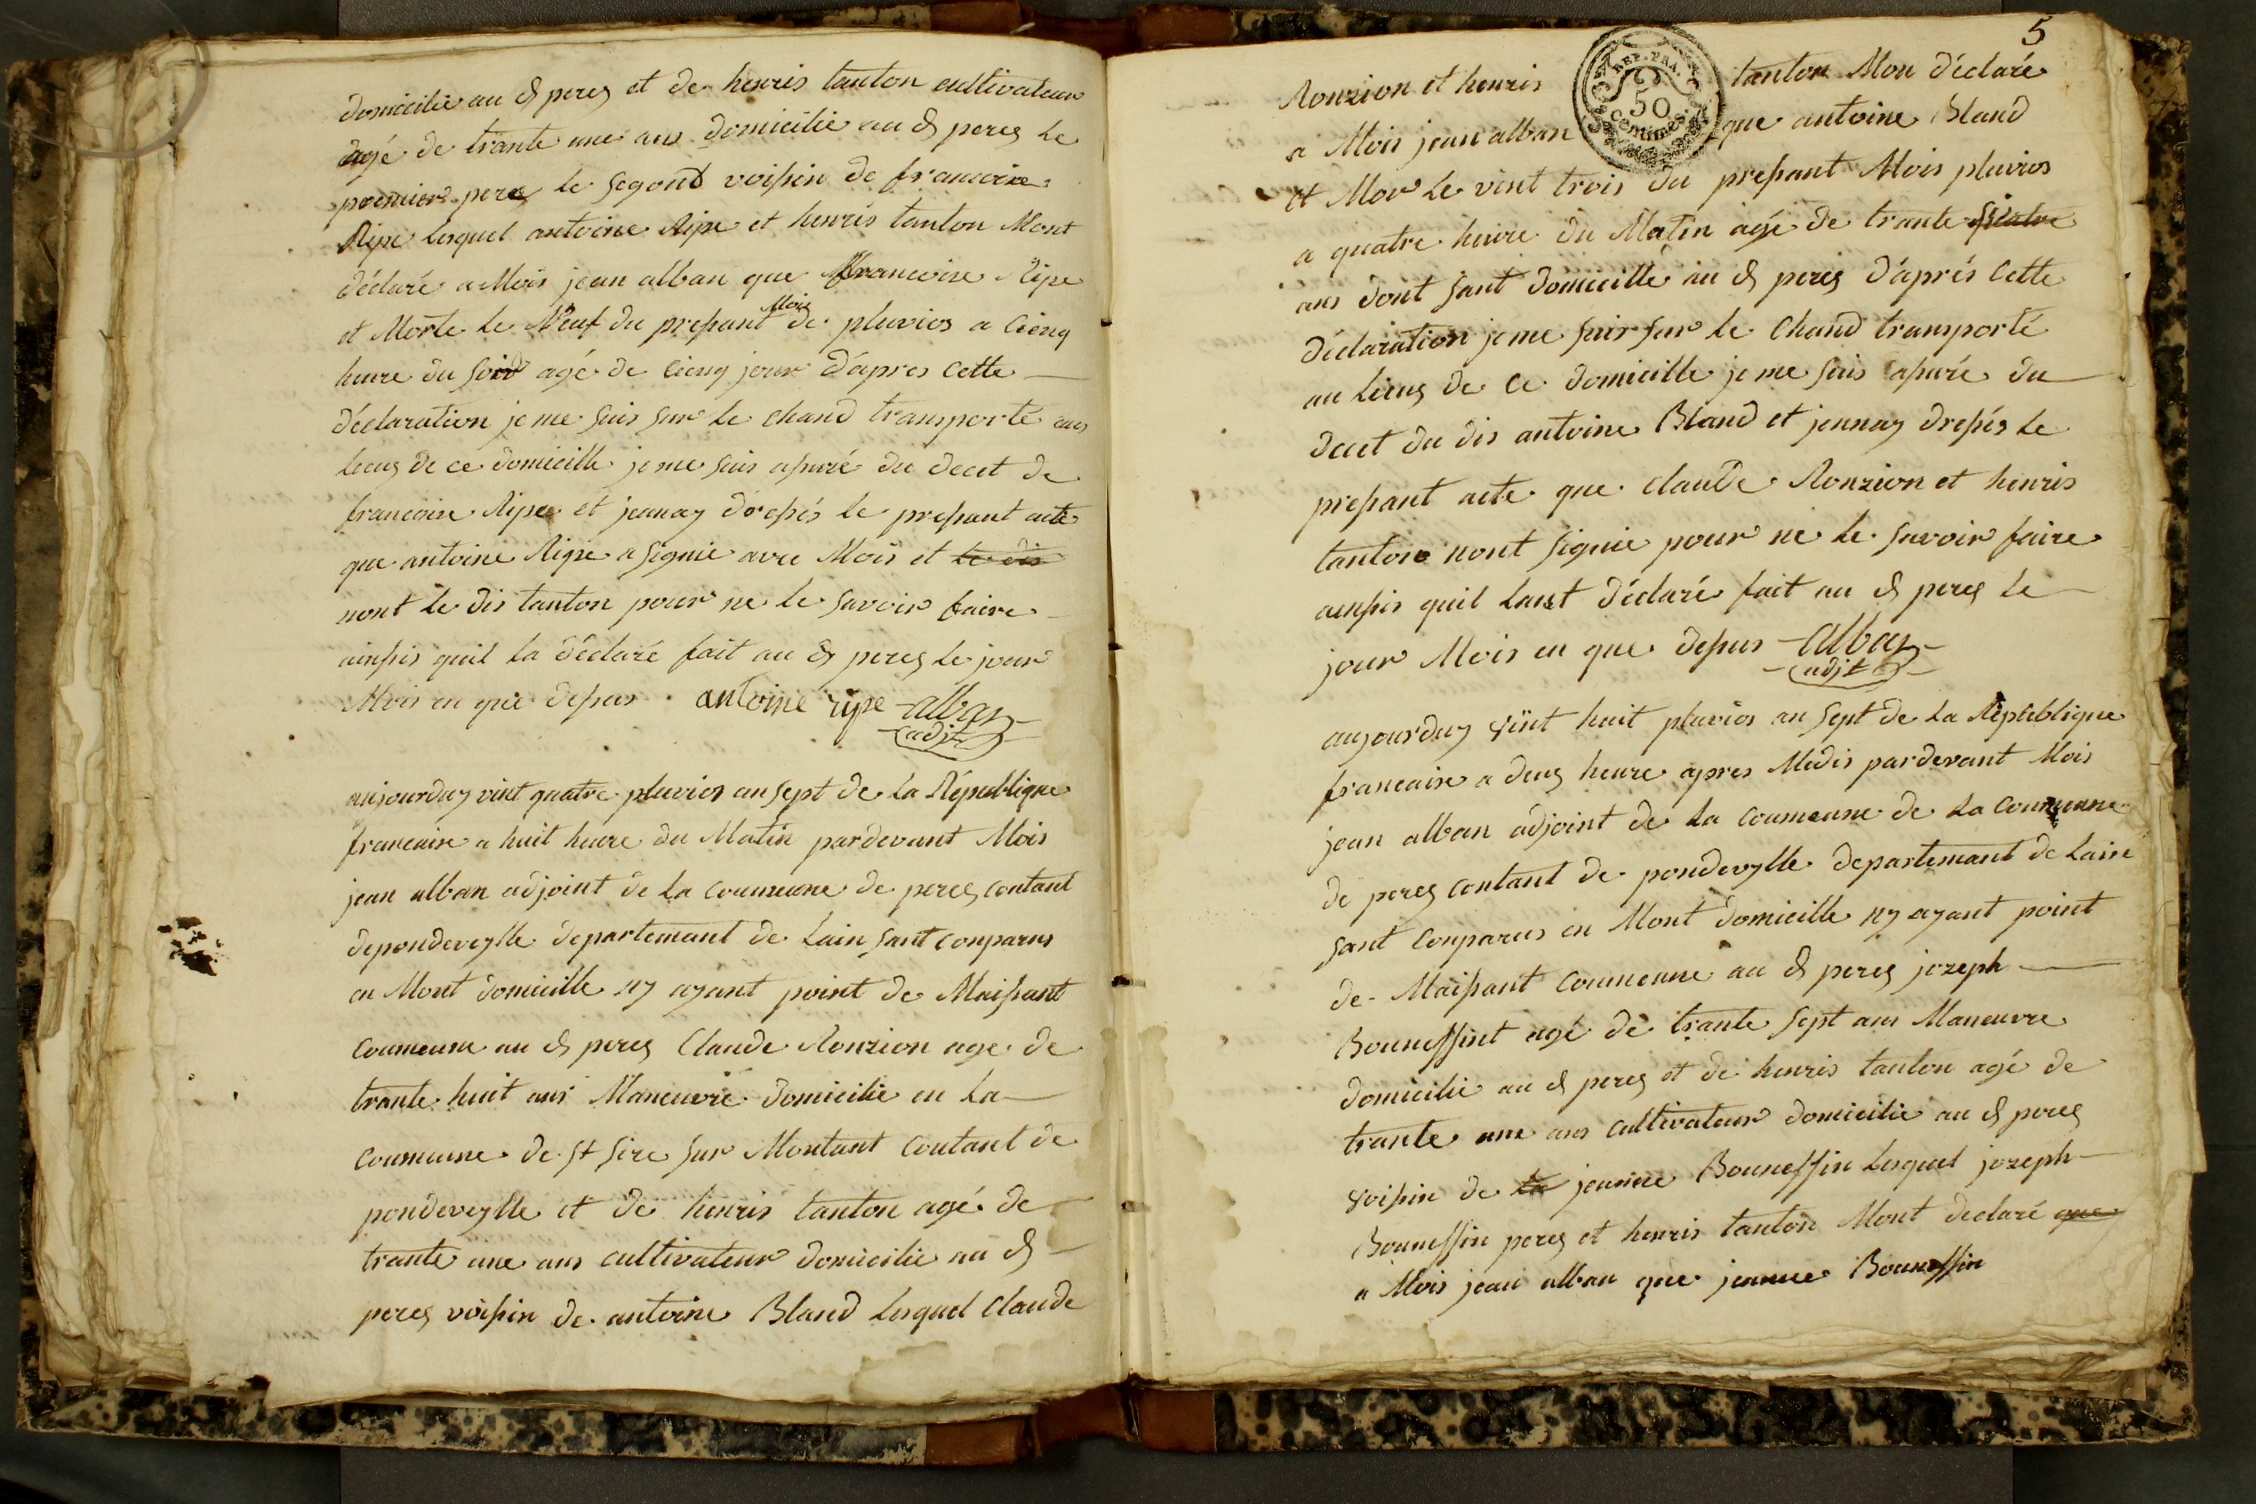 domicilie au d peres et de henris tanton cultivateur
agé de trante une ans domicilie au d peres le
premier pere le segont voisin de francoise
Ripe lesquel antoine Ripe et henris tanton Mont
déclaré a Mois jean alban que francoise Ripe
et Morte le Neuf du presant Mois de pluvios a Cienq
heure du soir agé de Cienq jour d'apres cette
déclaration je me suis sur le chand transporté au
lieus de ce domicille je me suis asuré du decet de
francoise Ripe et jeanay dresés le presant acte
que antoine Ripe a signie avec Mois et le dis
nont le dis tanton pour ne le savoir faire
ainsis quil la déclaré fait au d peres le jour
Mois en que desus antoine ripe alban
adjt
aujourduy vint quatre pluvios an sept de la République
francaise a huit heure du Matin pardevant Mois
jean alban adjoint de la coumeune de peres contant
depondeveylle departemant de Lain sant conparus
en Mont domicille ny ayant point de Maisant
coumeune au d peres Claude Ronzion age de
trante huit ans Maneuvre domicilie en la
coumeune de st sire sur Montant contant de
pondeveylle et de henris tanton agé de
trante une ans cultivateur domicilie au d
peres voisin de antoine Bland lesquel Claude
5
Ronzion et henris tanton Mon déclaré
REP. FRA.
50
centimes
a Mois jean alban que antoine Bland
et Mor le vint trois du presant Mois pluvios
a quatre heure du Matin agé de trante quatre
ans dont sant domicillé au d peres d'aprés cette
déclaration je me suis sur le Chand transporté
au lieus de ce domicille je me suis asuré du
decet du dis antoine Bland et jennay dresés le
presant acte que claude Ronzion et henris
tanton nont signie pour ne le savoir faire
ainsis quil lant déclaré fait au d peres le
jour Mois en que desus alban
adjt
aujourduy vint huit pluvios an sept de la Répeblique
francaise a deus heure apres Midis pardevant Mois
jean alban adjoint de la coumeune de la coumeune
de peres contant de pondevylle departemant de Lain
sant conparus en Mont domicille ny ayant point
de Maisant coumeune au d peres jozeph
Bouneffint agé de trante sept ans Maneuvre
domicilie au d peres et de henris tanton agé de
trante une ans cultivateur domicilie au d peres
voisin de la jeanne Bouneffin lesquel jozeph
Bouneffin peres et henris tanton Mont declaré que
a Mois jean alban que jeanne Bouneffin